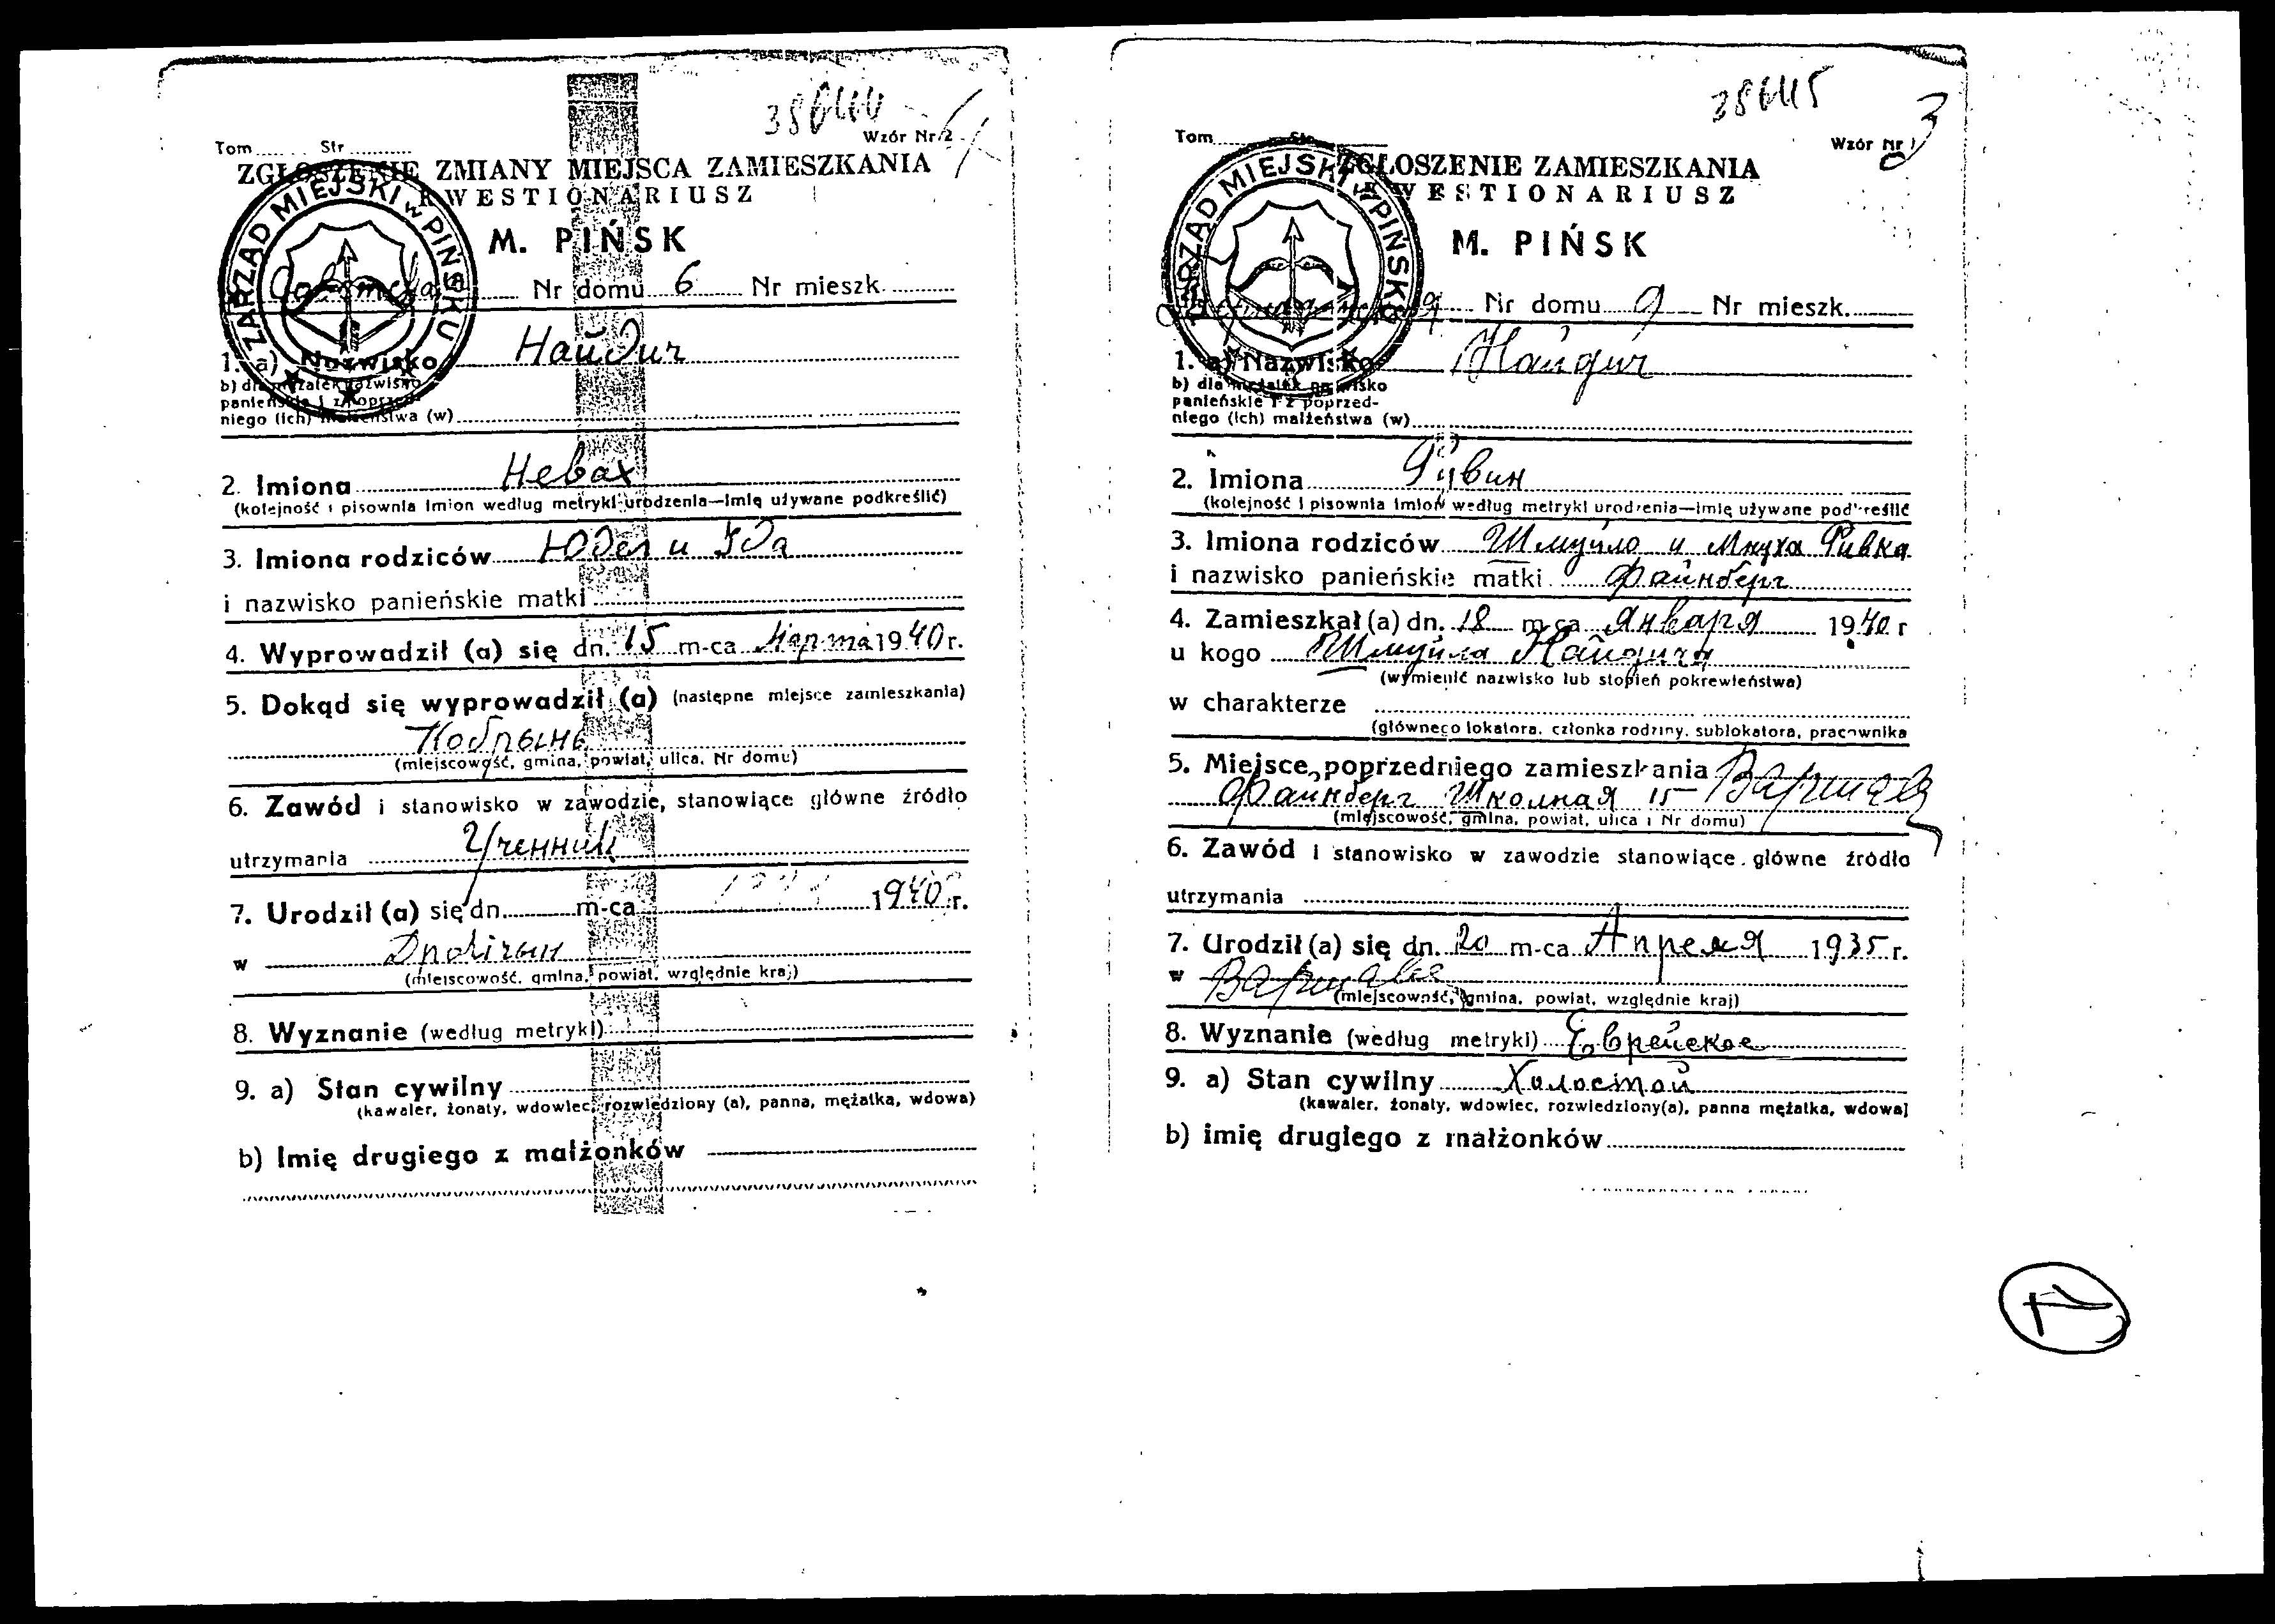 Tom Str
Wzór Nr 2
ZGŁOSZENIE ZMIANY MIEJSCA ZAMIESZKANIA
KWESTIONARIUSZ
ZARZĄD MIEJSKI w PIŃSKU
M. PIŃSK
Nr domu 6 Nr mieszk.
1. a) Nazwisko Найдич
b) dla mężatek nazwisko
panieńskie i z poprzed-
niego (ich) małżeństwa (w)
2. Imiona Невах
(kolejność i pisownia imion według metryki urodzenia—imię używane podkreślić)
3. Imiona rodziców Юдел и Ida
i nazwisko panieńskie matki
4. Wyprowadził (a) się dn. 15 m-ca Марта 1940 r.
5. Dokąd się wyprowadził (a) (następne miejsce zamieszkania)
Кобрынь
(miejscowość, gmina, powiat, ulica, Nr domu)
6. Zawód i stanowisko w zawodzie, stanowiące główne źródło
utrzymania Ученник
7. Urodził (a) się dn. m-ca 1940 r.
w
(miejscowość, gmina, powiat, względnie kraj)
8. Wyznanie (według metryki)
9. a) Stan cywilny
(kawaler, żonaty, wdowiec, rozwiedziony (a), panna, mężatka, wdowa)
b) Imię drugiego z małżonków
38645
Tom Str
Wzór Nr 1
3
ZGŁOSZENIE ZAMIESZKANIA
KWESTIONARIUSZ
ZARZĄD MIEJSKI w PIŃSKU
M. PIŃSK
Nr domu 9 Nr mieszk.
1. a) Nazwisko Найдич
b) dla mężatek nazwisko
panieńskie i z poprzed-
niego (ich) małżeństwa (w)
2. Imiona Рувин
(kolejność i pisownia imion według metryki urodzenia—imię używane podkreślić
3. Imiona rodziców Шмуйло и Мнуха Ривка
i nazwisko panieńskie matki Файнберг
4. Zamieszkał (a) dn. 18 m-ca Января 1940 r
u kogo Шмуйла Найдича
(wymienić nazwisko lub stopień pokrewieństwa)
w charakterze
(głównego lokatora, członka rodziny, sublokatora, pracownika
5. Miejsce poprzedniego zamieszkania Варшава
Файнберг Школная 15
(miejscowość, gmina, powiat, ulica i Nr domu)
6. Zawód i stanowisko w zawodzie stanowiące główne źródło
utrzymania
7. Urodził (a) się dn. 20 m-ca Апреля 1935 r.
w Варшаве
(miejscowość, gmina, powiat, względnie kraj)
8. Wyznanie (według metryki) Еврейское
9. a) Stan cywilny Холостой
(kawaler, żonaty, wdowiec, rozwiedziony(a), panna mężatka, wdowa)
b) imię drugiego z małżonków